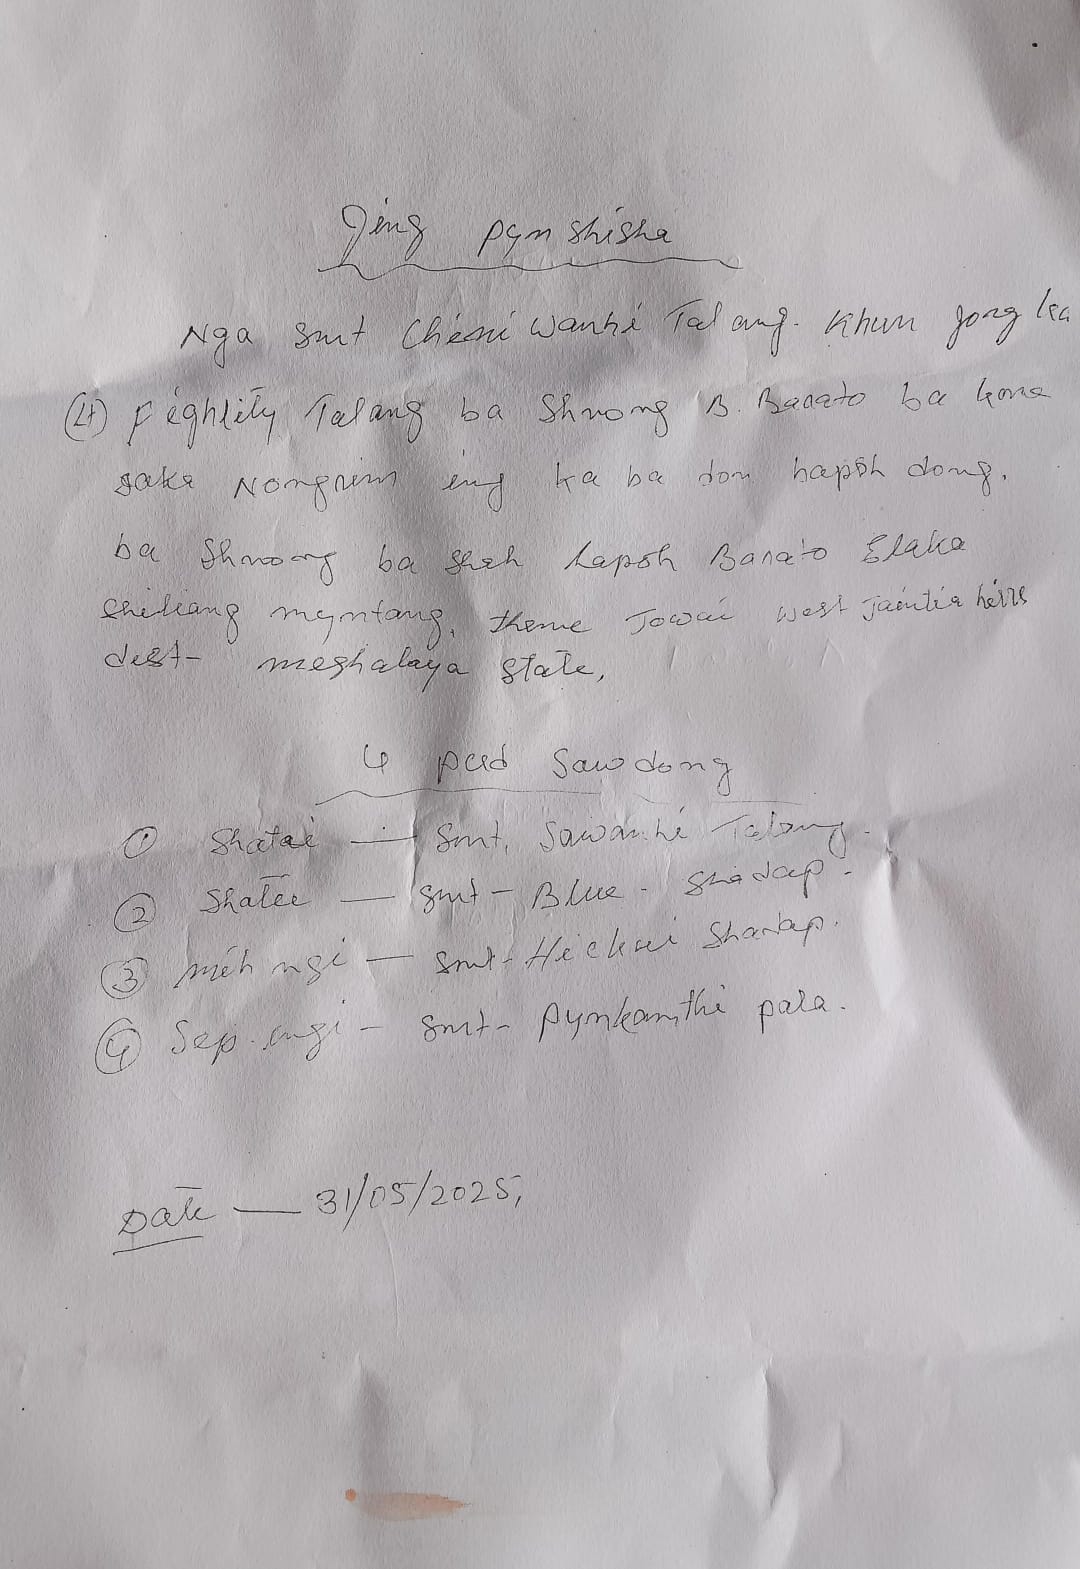 Jing pynshisha
Nga Smt Chemi Wanhi Talang. Khun jong ka
(L) Fightity Talang ba Shnong B. Barato ba kona
saka Nongrim ing ka ba don hapoh dong,
ba Shnoong ba shah hapoh Barato Elaka
Shiliang myntang, Theme Jowai West jaintia hills
dist- meghalaya State,
4 pud Sawdong
① Shatai — Smt, Sawanhi Talang.
② Shatee — Smt - Blue - Shadap.
③ mih ngi — Smt - Hickui Shadap.
④ Sep. ngi - Smt - Pynkamthi pala.
Date — 31/05/2025,